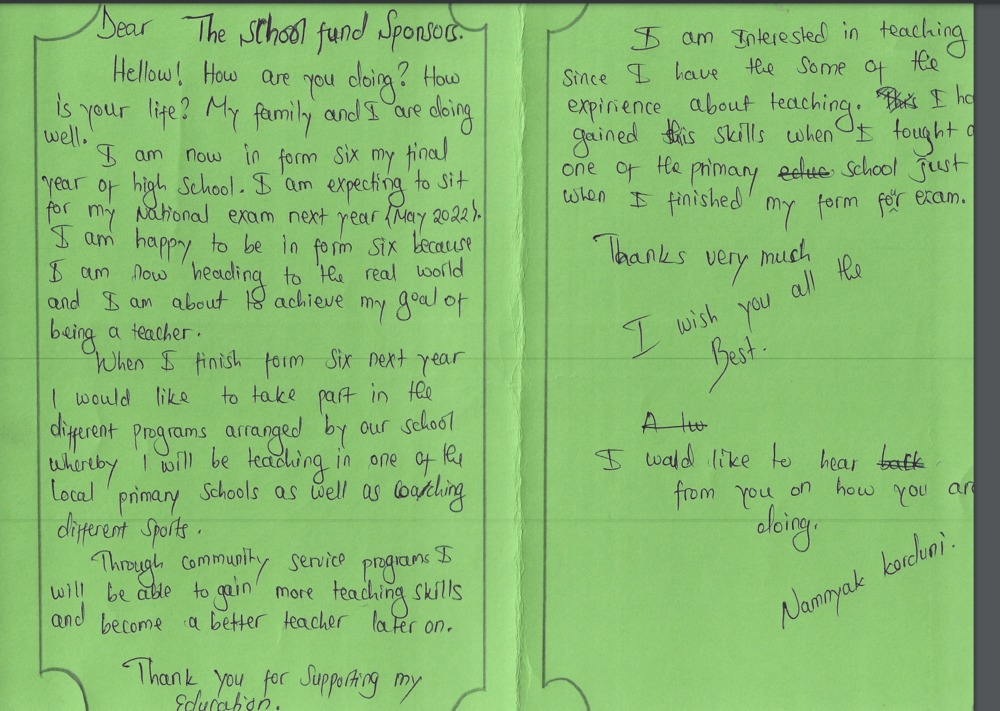 Dear The school fund Sponsors.
Hellow! How are you doing? How
is your life? My family and I are doing
well.
I am now in form six my final
year of high school. I am expecting to sit
for my National exam next year (May 2022).
I am happy to be in form six because
I am now heading to the real world
and I am about to achieve my goal of
being a teacher.
When I finish form six next year
I would like to take part in the
different programs arranged by our school
whereby I will be teaching in one of the
Local primary Schools as well as coatching
different sports.
Through community service programs I
will be able to gain more teaching skills
and become a better teacher later on.
Thank you for Supporting my
Education.
I am Interested in teaching
since I have the some of the
expirience about teaching. This I ha
gained this skills when I tought a
one of the primary educ school just
when I finished my form for exam.
Thanks very much
I wish you all the
Best.
A lw
I would like to hear back
from you on how you are
doing.
Nammyak korduni.